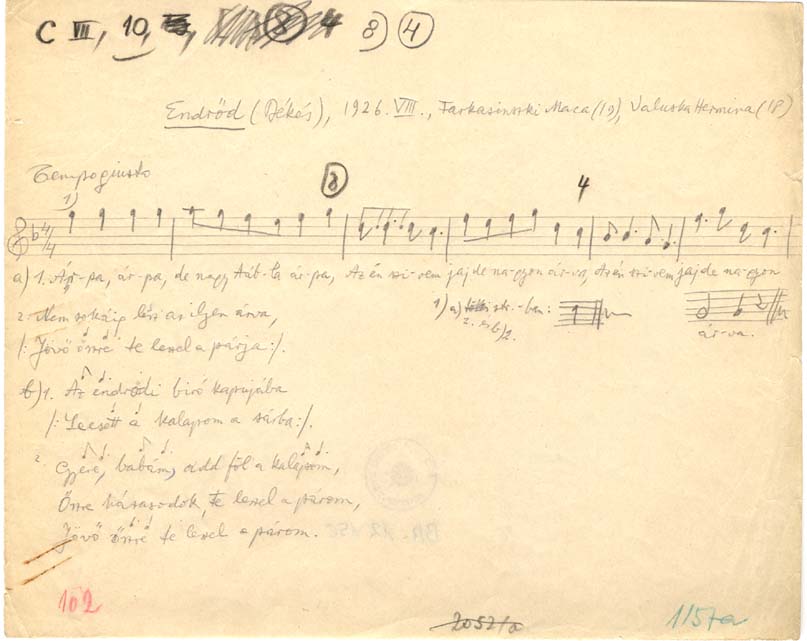 C VII, 10, 8) 4
Endrőd (Békés), 1926. VIII., Farkasinszki Maca (19), Valuska Hermina (18)
Tempo giusto
1) 8 4
4/4
a) 1. Árpa, ár-pa, de nagy táb-la ár-pa, Az én szi-vem jaj de na-gyon ár-va, Az én szi-vem jaj de na-gyon
ár-va.
1) a) str.-ben:
2. és b) 2.
2. Nem sokáig lësz az ilyen árva,
/: Jövő őszre te leszel a párja :/.
b) 1. Az endrődi biró kapujába
/: Leesett a kalapom a sárba :/.
2. Gyere, babám, add föl a kalapom,
Őszre házasodok, te leszel a párom,
Jövő őszre te leszel a párom.
102
2052/a
1157a